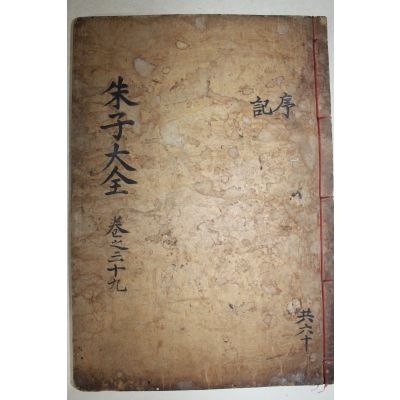 序
記
朱子大全 卷之三十九
共六十